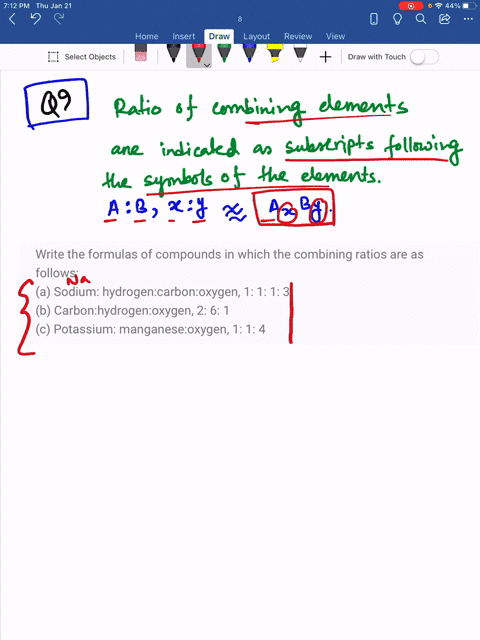 7:12 PM Thu Jan 21
44%
8
Home Insert Draw Layout Review View
Select Objects
Draw with Touch
Q9
Ratio of combining elements
are indicated as subscripts following
the symbols of the elements.
A:B, x:y ≈ AxBy.
Write the formulas of compounds in which the combining ratios are as
follows:
Na
(a) Sodium: hydrogen:carbon:oxygen, 1: 1: 1: 3
(b) Carbon:hydrogen:oxygen, 2: 6: 1
(c) Potassium: manganese:oxygen, 1: 1: 4